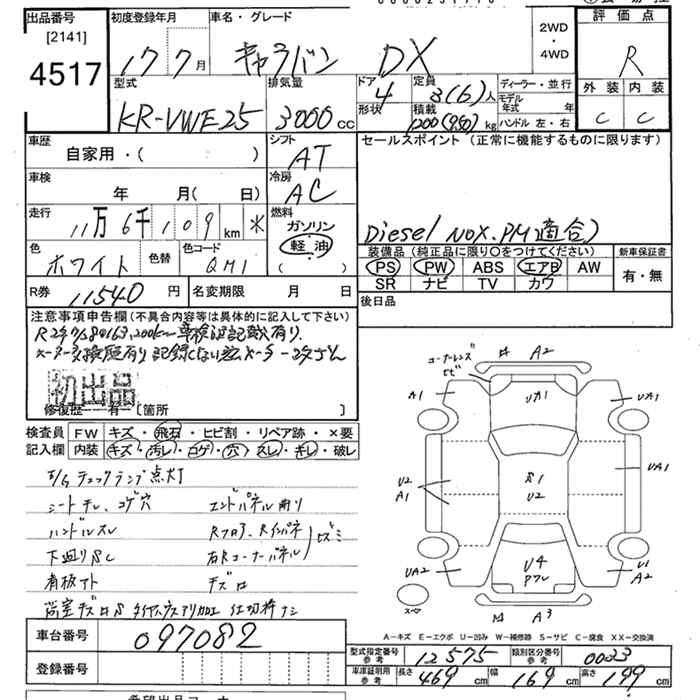 出品番号
[2141]
4517
初度登録年月
17 7月
車名・グレード
キャラバン DX
2WD
・
4WD
評価点
R
外装 内装
C C
型式
KR-VWE25
排気量
3000cc
ドア
4
形状
定員
3(6)人
積載
1200(950)kg
ディーラー・並行
モデル年式 年
ハンドル 左・右
車歴
自家用・( )
シフト
AT
車検
年 月( 日)
冷房
AC
走行
11万6千109km ※
燃料
ガソリン
軽・油
( )
色
ホワイト
色替
色コード
QM1
R券
11540円
名変期限 月 日
セールスポイント(正常に機能するものに限ります)
Diesel NOX.PM適合)
装備品(純正品に限り○をつけてください)
PS PW ABS エアB AW
SR ナビ TV カワ
新車保証書
有・無
後日品
注意事項申告欄(不具合内容等は具体的に記入して下さい)
初出品
修復歴 有 [箇所 ]
検査員記入欄
FW キズ・飛石・ヒビ割・リペア跡・×要
内装 キズ・汚レ・コゲ・穴・スレ・キレ・破レ
E/Gチェックランプ点灯
シートキレ、コゲ穴 エンドパネル曲り
ハンドルスレ
下廻りSC 右Rコーナーパネル
看板アト キズロ
コーナーレンズ
ヒビ
A2
A1
UA1
UA1
S1
U2
U2
A1
UA1
U4
UA2
U1
A2
A3
スペア
A-キズ E-エクボ U-凹み W-補修跡 S-サビ C-腐食 XX-交換済
車台番号
097082
登録番号
型式指定番号
参考
12575
類別区分番号
参考
0023
車庫証明用
参考
長さ 469cm 幅 169cm 高さ 199cm